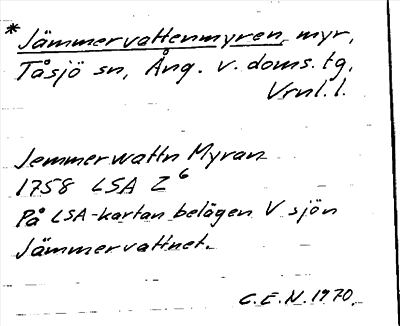 *Jämmervattenmyren, myr,
Tåsjö sn, Ång. v. doms. tg,
Vrnl. l.
Jemmerwattn Myran
1758 LSA Z⁶
På LSA-kartan belägen V sjön
Jämmervattnet.
C.E.N. 1970.